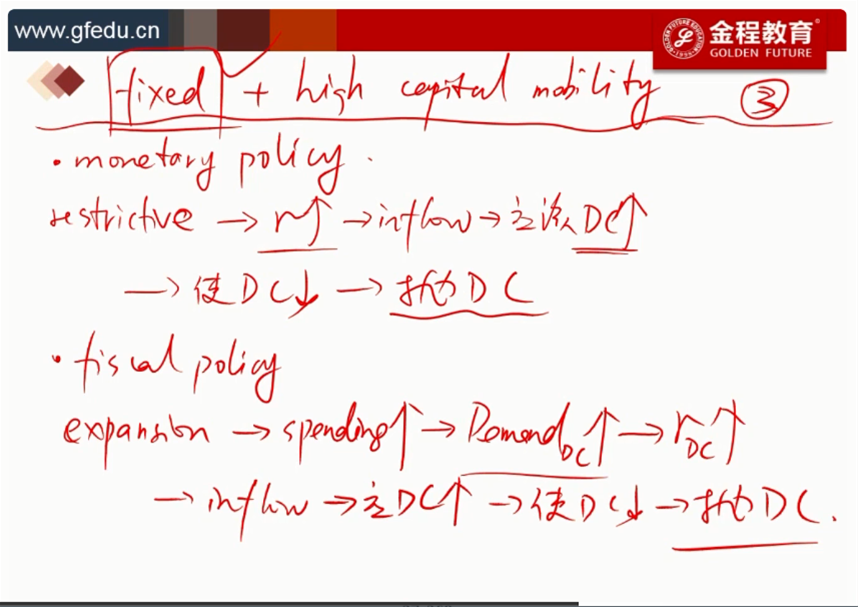 www.gfedu.cn
金程教育®
GOLDEN FUTURE
fixed + high capital mobility ③
• monetary policy.
restrictive → r↑ → inflow → DC↑
→ 使DC↓ → 抛DC
• fiscal policy
expansion → spending↑ → Demand DC↑ → r DC↑
→ inflow → DC↑ → 使DC↓ → 抛DC.